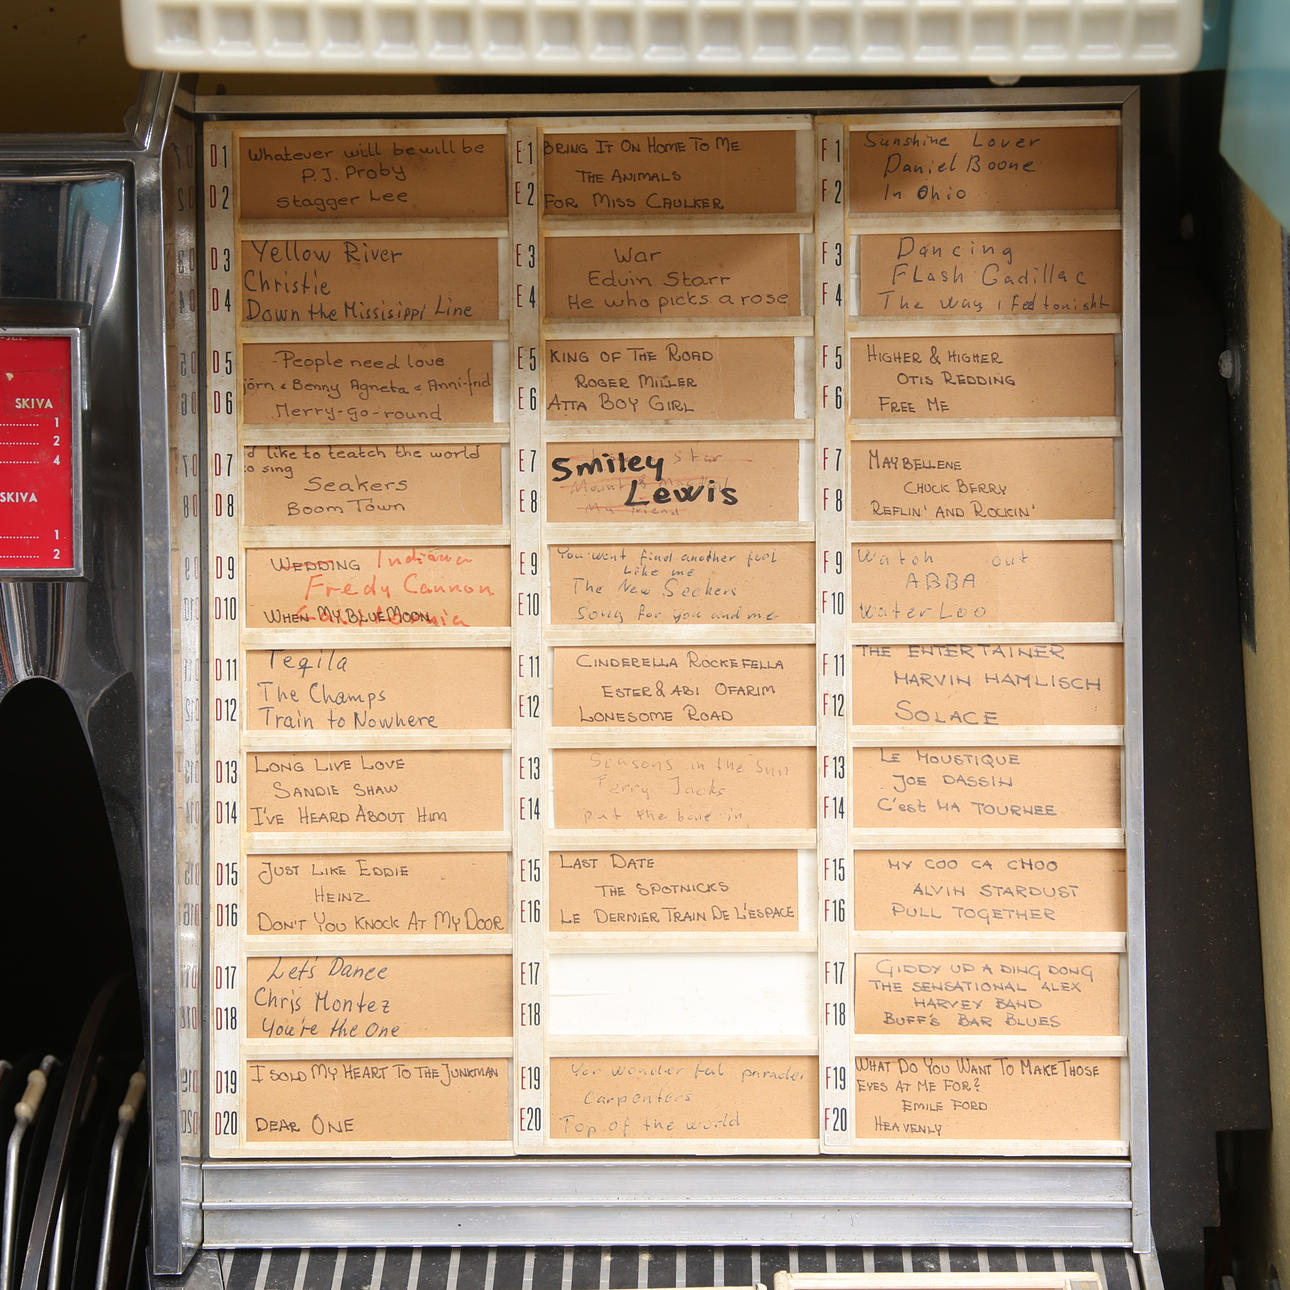 SKIVA
1
2
4
SKIVA
1
2
D1
D2
Whatever will be will be
P.J. Proby
Stagger Lee
D3
D4
Yellow River
Christie
Down the Missisippi Line
D5
D6
People need love
jörn & Benny Agneta & Anni-frid
Merry-go-round
D7
D8
d like to teatch the world
to sing
Seakers
Boom Town
D9
D10
WEDDING Indiana
Fredy Cannon
WHEN MY BLUE MOON
D11
D12
Tequila
The Champs
Train to Nowhere
D13
D14
LONG LIVE LOVE
SANDIE SHAW
I'VE HEARD ABOUT HIM
D15
D16
JUST LIKE EDDIE
HEINZ
DON'T YOU KNOCK AT MY DOOR
D17
D18
Let's Dance
Chris Montez
You're the One
D19
D20
I SOLD MY HEART TO THE JUNKMAN
DEAR ONE
E1
E2
BRING IT ON HOME TO ME
THE ANIMALS
FOR MISS CAULKER
E3
E4
War
Edvin Starr
He who picks a rose
E5
E6
KING OF THE ROAD
ROGER MILLER
ATTA BOY GIRL
E7
E8
Star
Smiley
Lewis
My friend
E9
E10
You wont find another fool
like me
The New Seekers
Song for you and me
E11
E12
CINDERELLA ROCKEFELLA
ESTER & ABI OFARIM
LONESOME ROAD
E13
E14
Seasons in the Sun
Terry Jacks
put the bone in
E15
E16
LAST DATE
THE SPOTNICKS
LE DERNIER TRAIN DE L'ESPACE
E17
E18
E19
E20
You wonder ful parader
Carpenters
Top of the world
F1
F2
Sunshine Lover
Daniel Boone
In Ohio
F3
F4
Dancing
Flash Cadillac
The way I feel tonight
F5
F6
HIGHER & HIGHER
OTIS REDDING
FREE ME
F7
F8
MAYBELLENE
CHUCK BERRY
REFLIN' AND ROCKIN'
F9
F10
Watch out
ABBA
WaterLoo
F11
F12
THE ENTERTAINER
MARVIN HAMLISCH
SOLACE
F13
F14
LE MOUSTIQUE
JOE DASSIN
C'est MA TOURNEE
F15
F16
MY COO CA CHOO
ALVIN STARDUST
PULL TOGETHER
F17
F18
GIDDY UP A DING DONG
THE SENSATIONAL ALEX
HARVEY BAND
BUFF'S BAR BLUES
F19
F20
WHAT DO YOU WANT TO MAKE THOSE
EYES AT ME FOR?
EMILE FORD
HEAVENLY